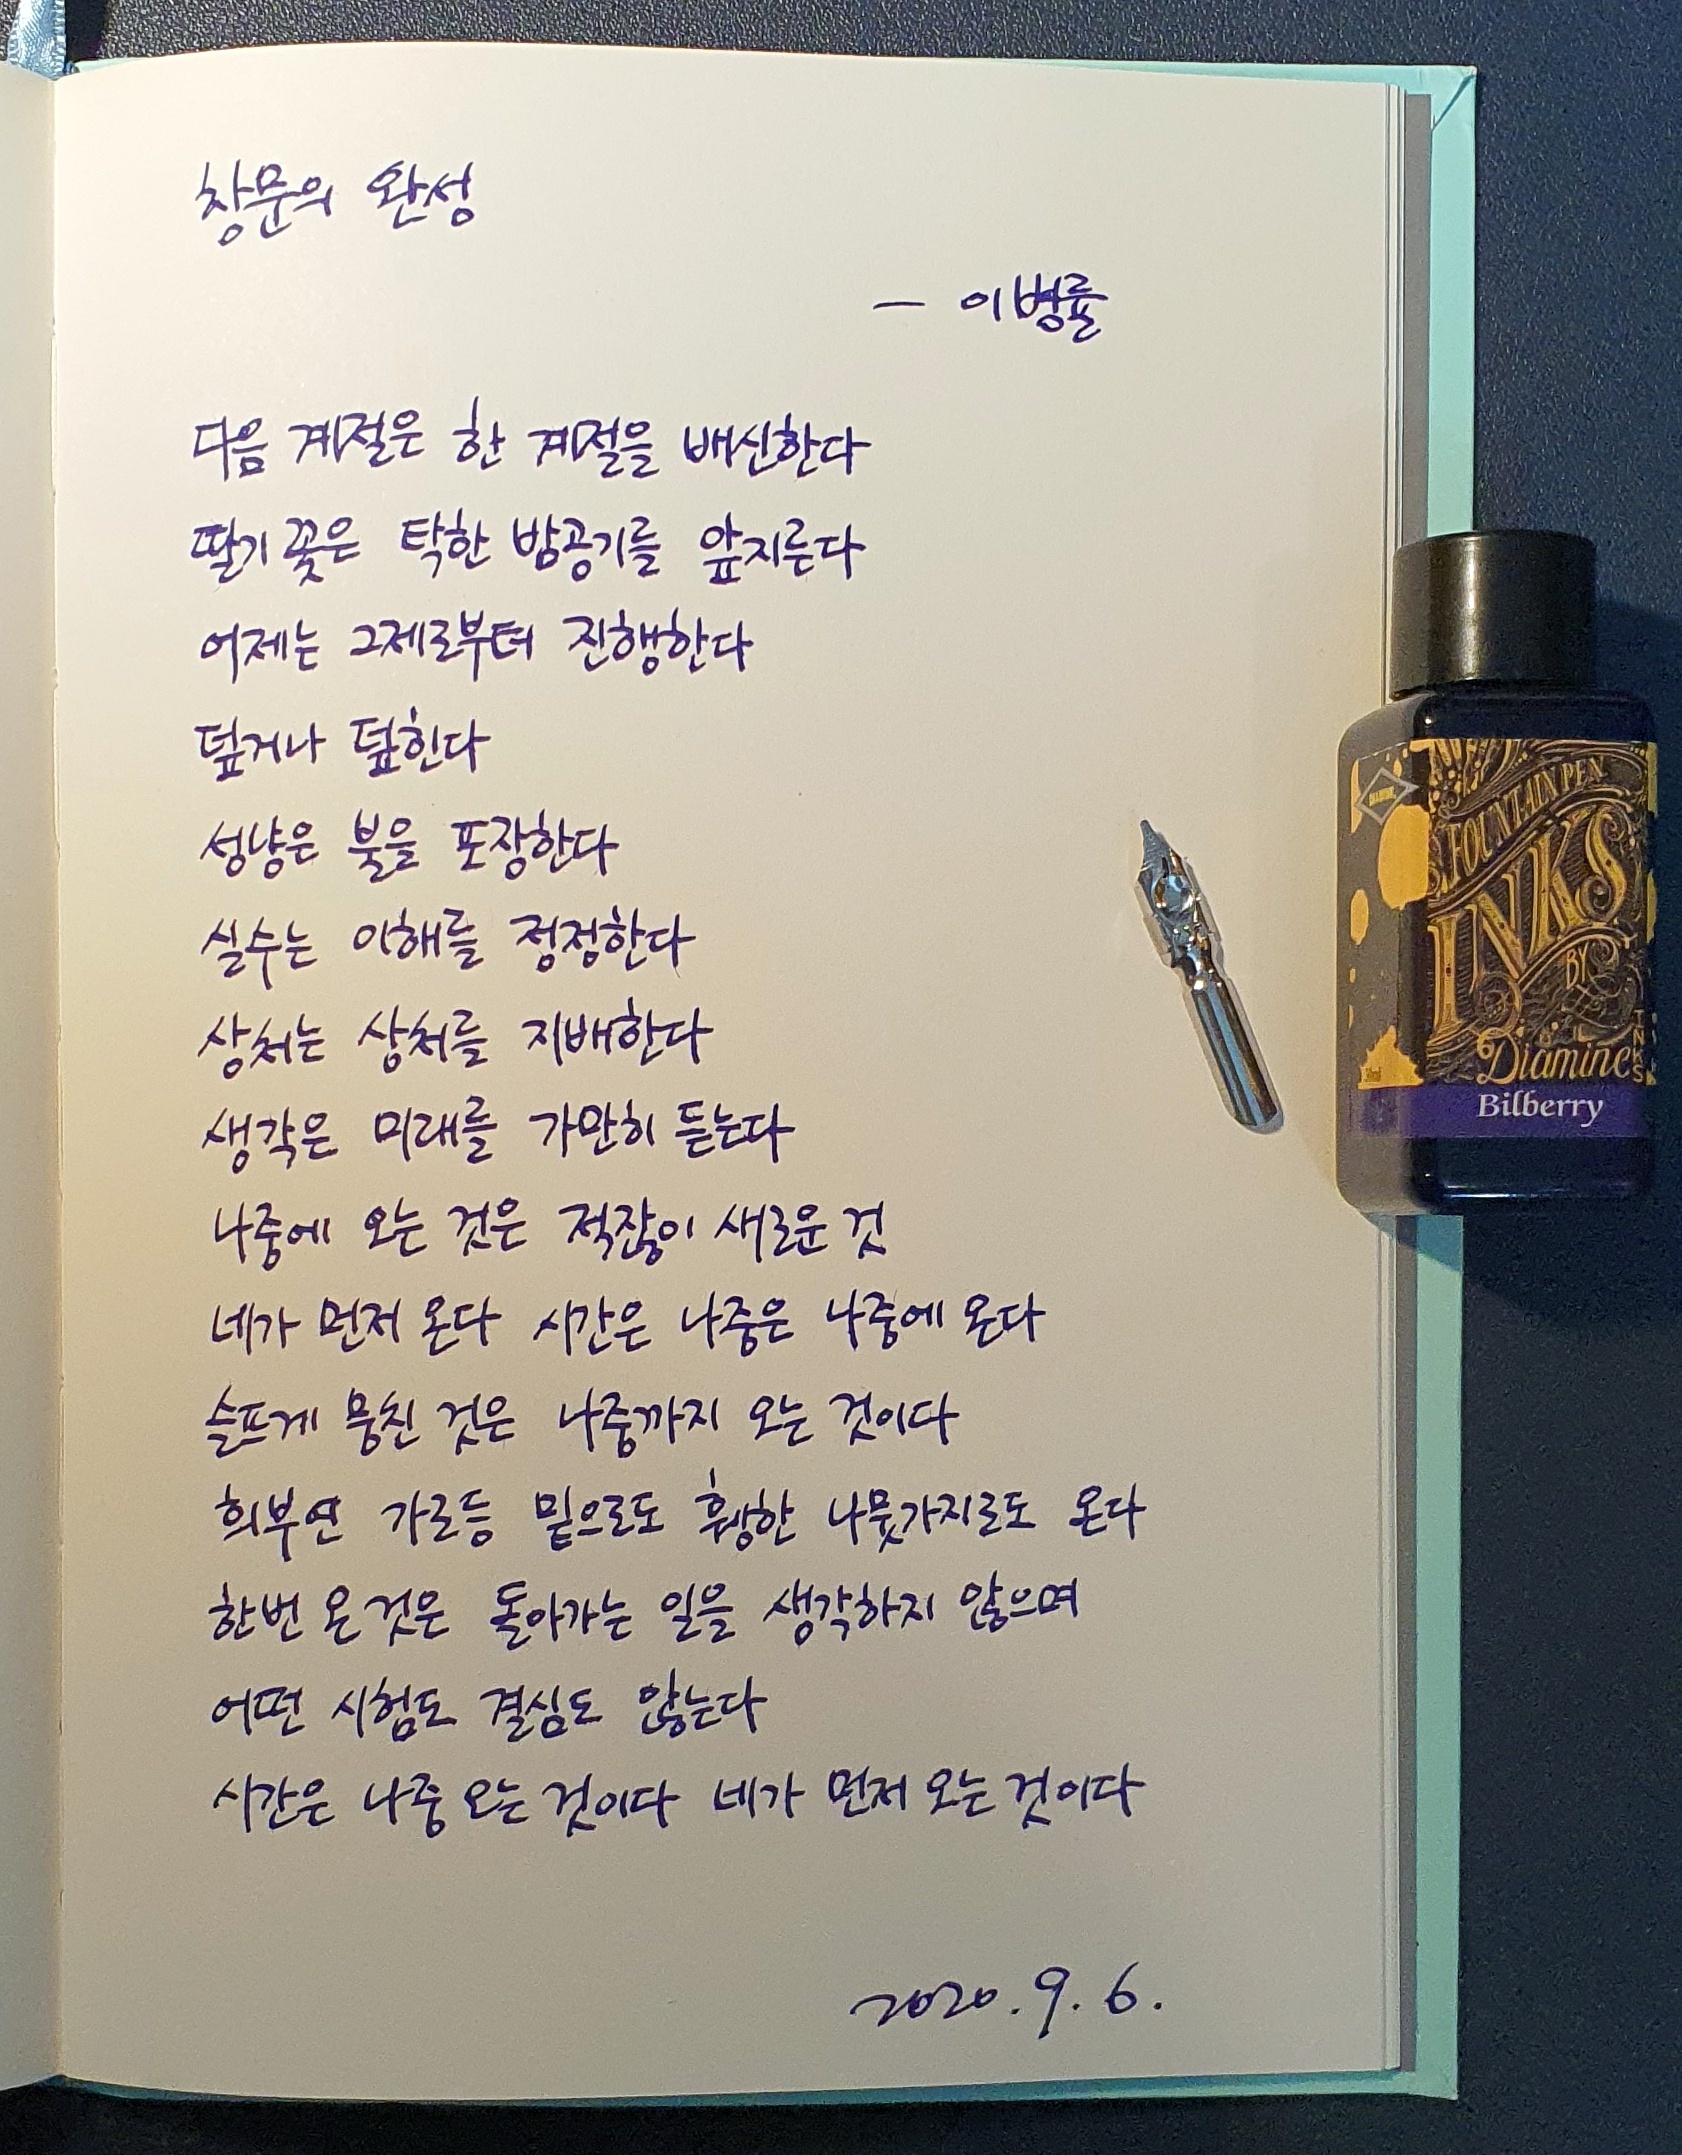 창문의 완성
— 이병률
다음 계절은 한 계절을 배신한다
딸기 꽃은 탁한 밤공기를 앞지른다
어제는 그제로부터 진행한다
덮거나 덮힌다
성냥은 불을 포장한다
실수는 이해를 정정한다
상처는 상처를 지배한다
생각은 미래를 가만히 듣는다
나중에 오는 것은 적잖이 새로운 것
네가 먼저 온다 시간은 나중은 나중에 온다
슬프게 뭉친 것은 나중까지 오는 것이다
희부연 가로등 밑으로도 휑한 나뭇가지로도 온다
한번 온 것은 돌아가는 일을 생각하지 않으며
어떤 시험도 결심도 않는다
시간은 나중 오는 것이다 네가 먼저 오는 것이다
2020. 9. 6.
FOUNTAIN PEN
INKS
BY
Diamine
Bilberry